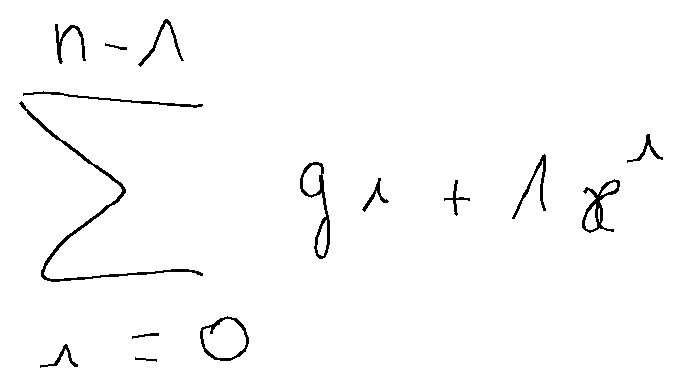 \sum_{i=0}^{n-1} g i + 1 x^{i}